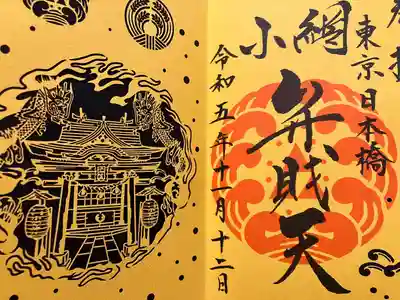 東京日本橋
小網
弁財天
令和五年十一月十二日